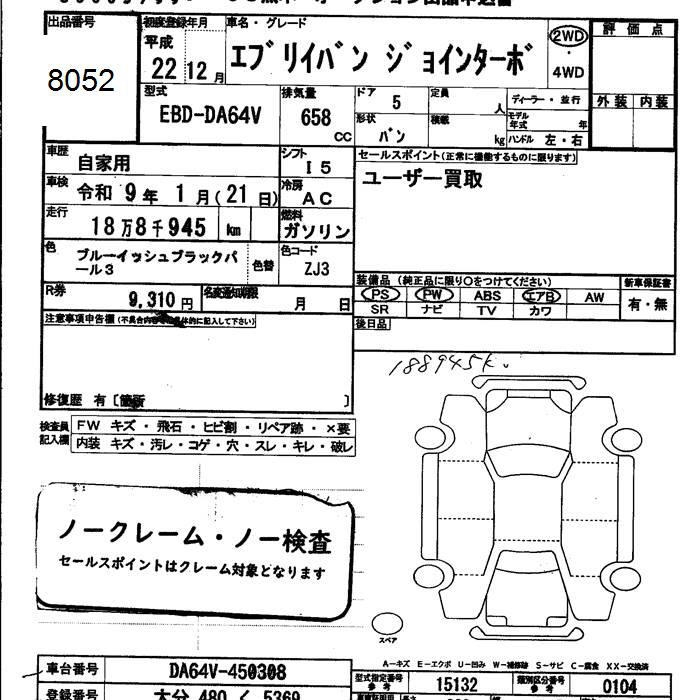 出品番号
8052
初度登録年月
平成
22 12 月
車名・グレード
エブリイバン ジョインターボ
2WD
・
4WD
評価点
外装 内装
型式
EBD-DA64V
排気量
658
CC
ドア
5
定員
人
形状
バン
積載
kg
ディーラー・並行
モデル年式 年
ハンドル 左・右
車歴
自家用
シフト
I5
車検
令和 9年 1月(21日)
冷房
AC
走行
18万8千945 km
燃料
ガソリン
色
ブルーイッシュブラックパ
ール3
色替
色コード
ZJ3
R券
9,310円
名変通知期限
月 日
セールスポイント(正常に機能するものに限ります)
ユーザー買取
装備品 (純正品に限り○をつけてください)
PS PW ABS エアB AW
SR ナビ TV カワ
新車保証書
有・無
後日品
注意事項申告欄(不具合内容を具体的に記入して下さい)
修復歴 有〔箇所 〕
検査員
記入欄
FW キズ・飛石・ヒビ割・リペア跡・×要
内装 キズ・汚レ・コゲ・穴・スレ・キレ・破レ
188945k.
ノークレーム・ノー検査
セールスポイントはクレーム対象となります
スペア
A-キズ E-エクボ U-凹み W-補修跡 S-サビ C-腐食 XX-交換済
車台番号
DA64V-450308
型式指定番号
参考
15132
類別区分番号
参考
0104
登録番号
大分 480 く 5369